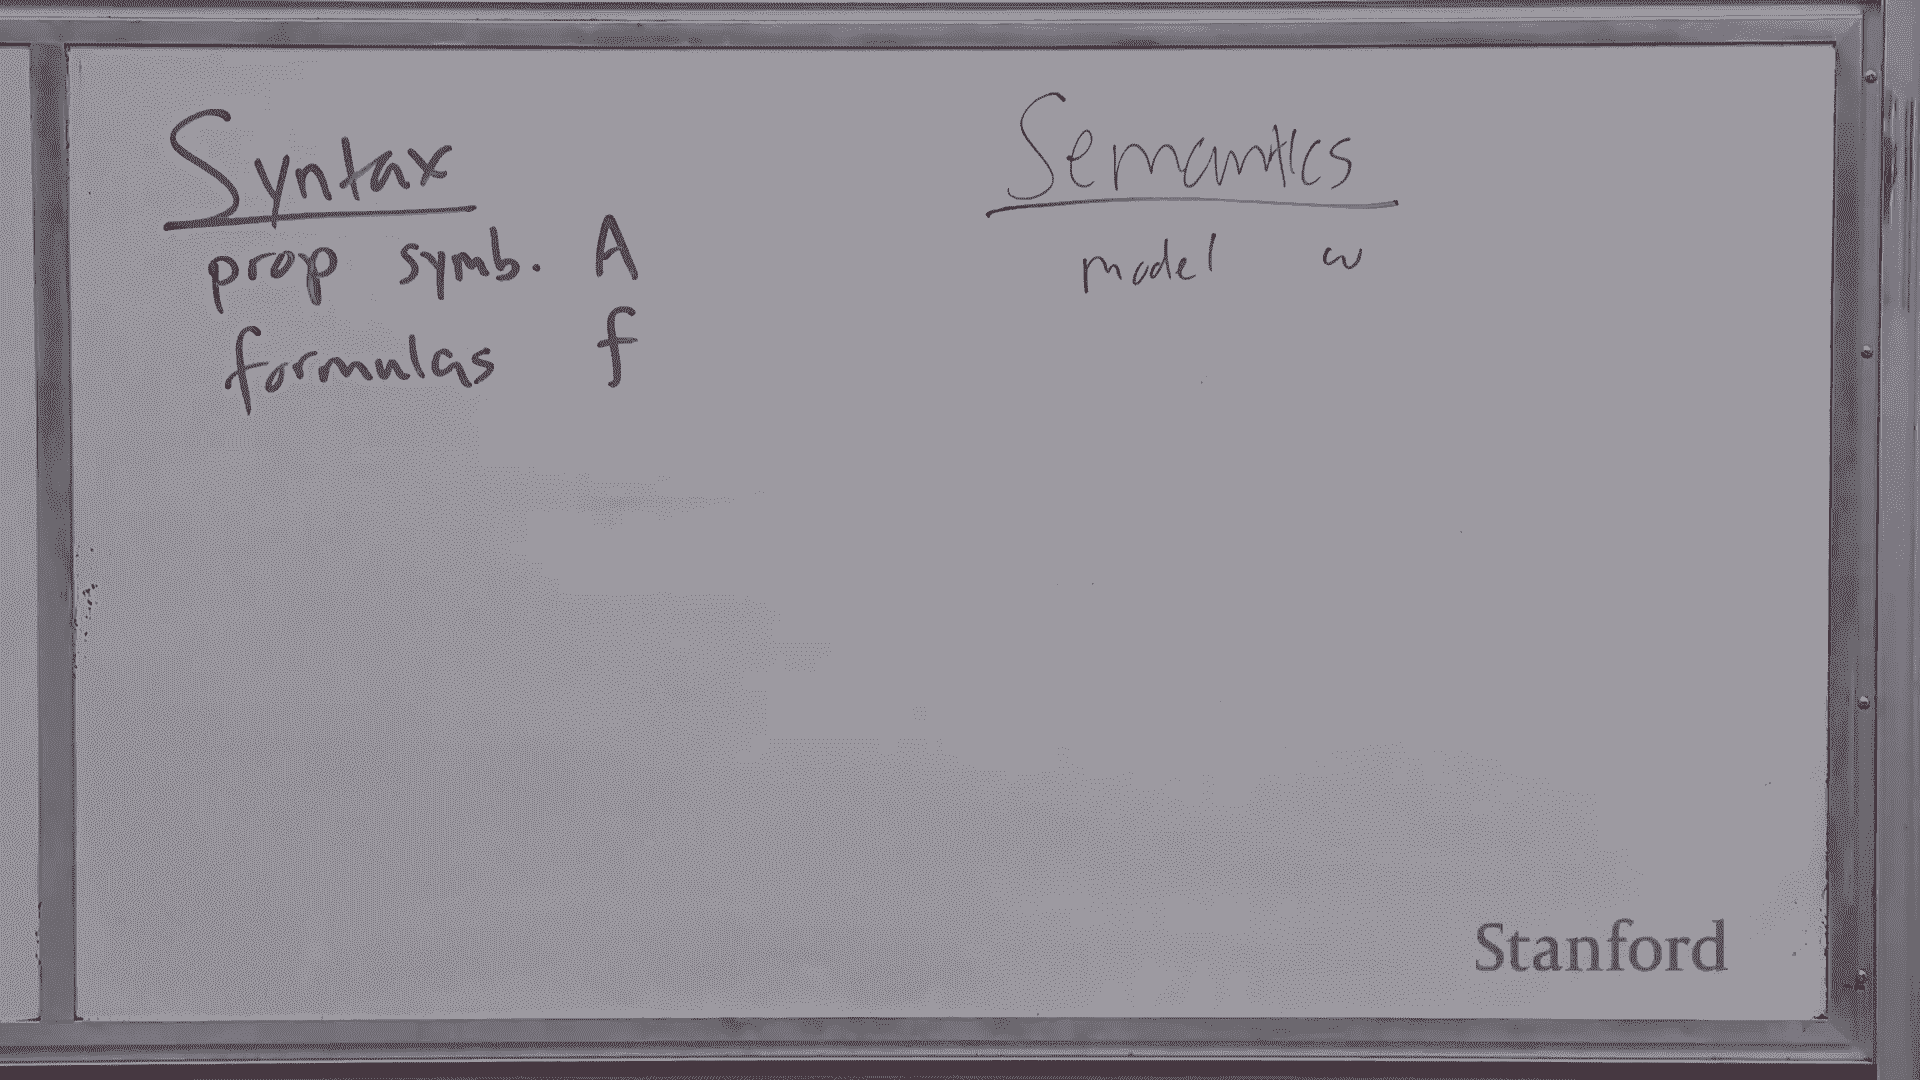 Syntax
prop symb. A
formulas f
Semantics
model w
Stanford